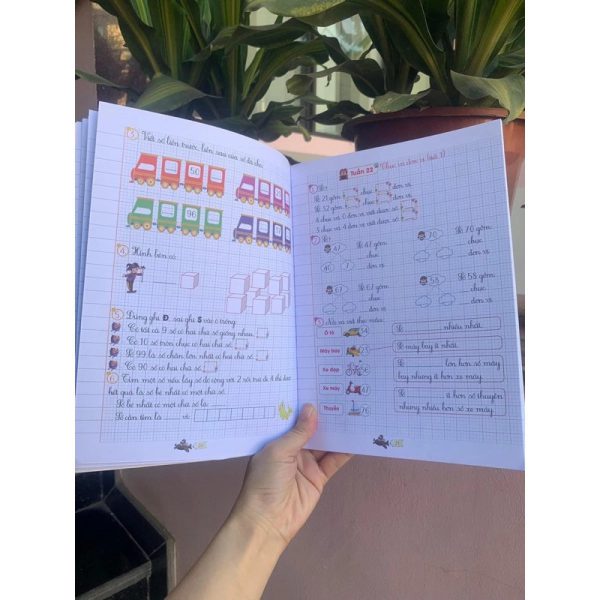 3 Viết số liền trước, liền sau của số đã cho.
50
96
4 Hình bên có
5 Đúng ghi Đ, sai ghi S vào ô trống.
Có tất cả 9 số có hai chữ số giống nhau.
Có 10 số tròn chục có hai chữ số.
Số 99 là số chẵn lớn nhất có hai chữ số.
Có 90 số có hai chữ số.
6 Tìm một số nếu lấy số đó cộng với 2 rồi trừ đi 4 thì được
kết quả là số bé nhất có một chữ số.
Số bé nhất có một chữ số là
Số cần tìm là vì
Tuần 22 Chục và đơn vị
Số 21 gồm chục đơn vị
Số 32 gồm chục đơn vị
4 chục và 0 đơn vị viết được số
3 chục và 4 đơn vị viết được số
47 Số 47 gồm chục đơn vị
70 Số 70 gồm chục đơn vị
67 Số 67 gồm chục đơn vị
58 Số 58 gồm chục đơn vị
Ô tô 54
Số nhiều nhất.
Máy bay 25
Số máy bay ít nhất.
Xe đạp
Số lớn hơn số máy
bay nhưng ít hơn xe máy.
Xe máy 67
Số ít hơn số thuyền
nhưng nhiều hơn số xe máy.
Thuyền 76